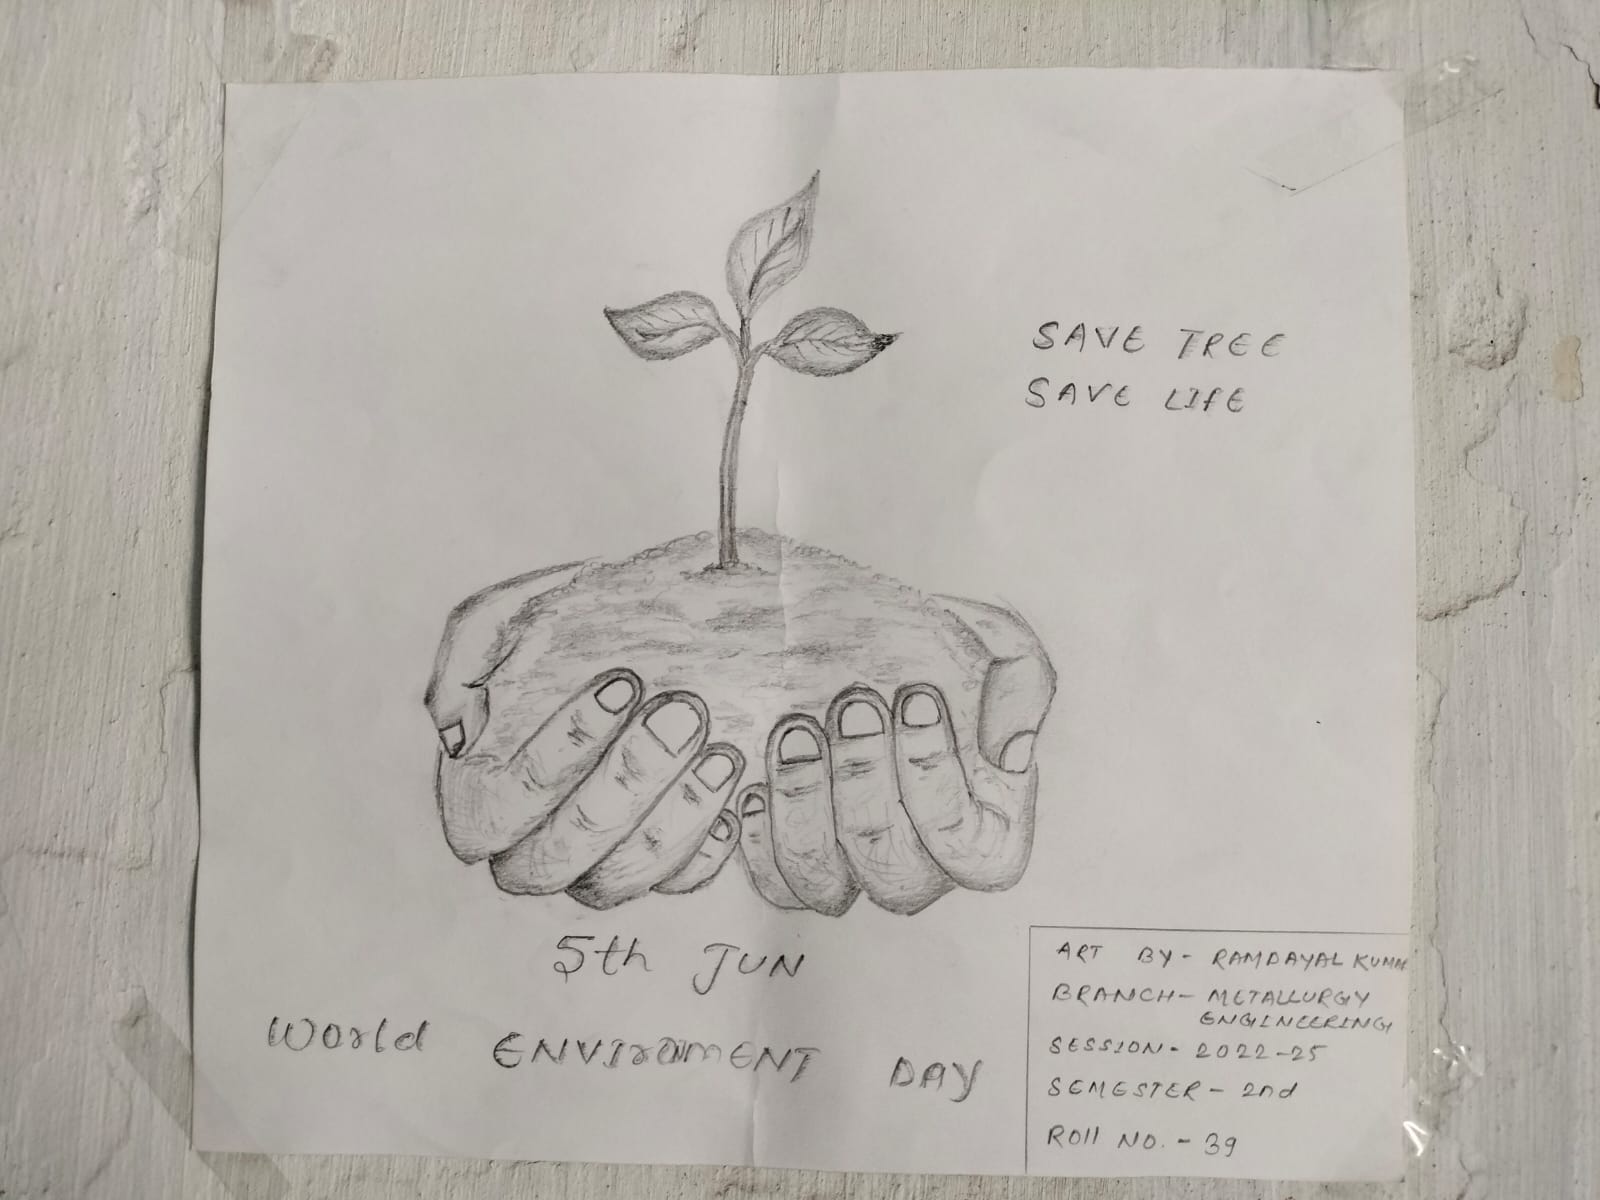 SAVE TREE
SAVE LIFE
5th JUN
World ENVIROMENT DAY
ART BY - RAMDAYAL KUMAR
BRANCH - METALLURGY
ENGINEERING
SESSION - 2022-25
SEMESTER - 2nd
ROll NO. - 39